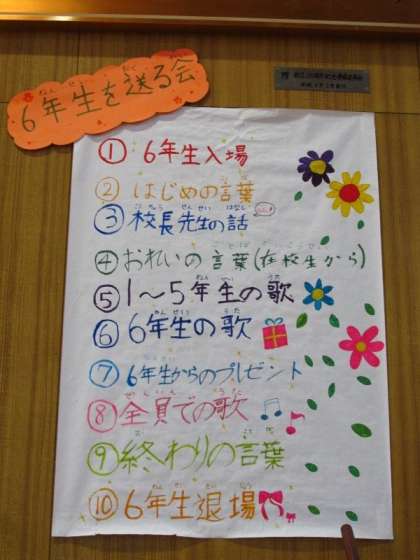 6年生を送る会
① 6年生入場
② はじめの言葉
③ 校長先生の話
④ おれいの言葉(在校生から)
⑤ 1〜5年生の歌
⑥ 6年生の歌
⑦ 6年生からのプレゼント
⑧ 全員での歌
⑨ 終わりの言葉
⑩ 6年生退場